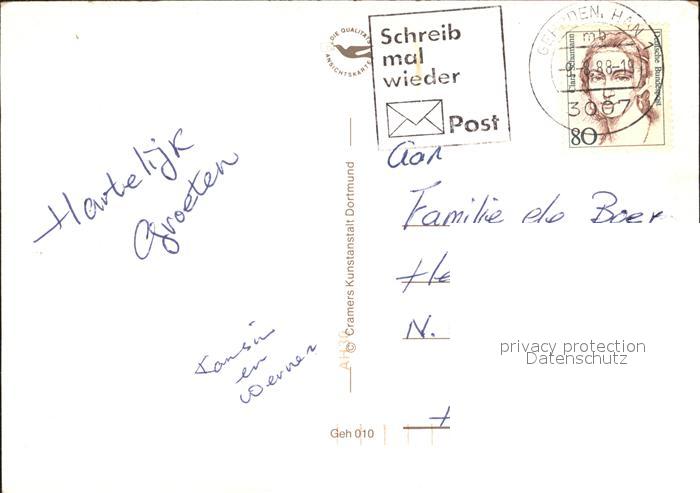 DIE QUALITÄTS
ANSICHTSKARTE
Schreib
mal
wieder
Post
GEHRDEN, HAN 1
mb
88-19
3007
Clara Schumann
Deutsche Bundespost
80
Hartelijk
Groeten
en
Werner
© Cramers Kunstanstalt Dortmund
Geh 010
Aan
Familie de Boer
He
N.
privacy protection
Datenschutz